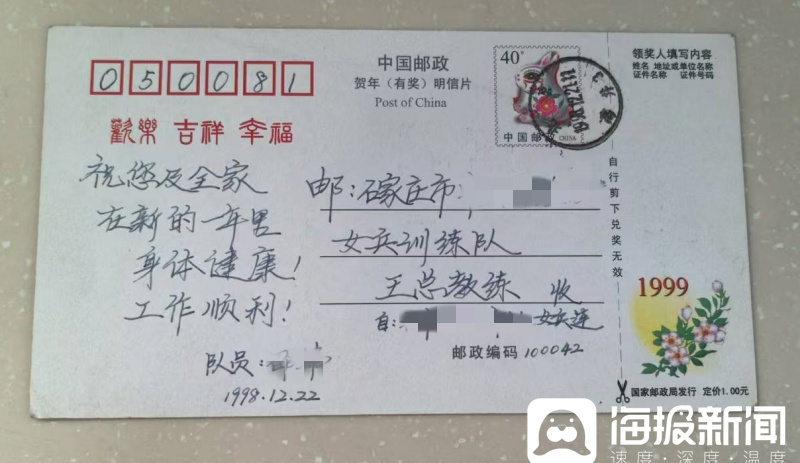 050081
中国邮政
贺年（有奖）明信片
Post of China
40
中国邮政
CHINA
1998.12.22.11
领奖人填写内容
姓名 地址或单位名称
证件名称 证件号码
歡樂 吉祥 幸福
祝您及全家
在新的一年里
身体健康！
工作顺利！
队员：
1998.12.22
邮：石家庄市
女兵训练队
王总教练 收
自：
女兵连
邮政编码 100042
自行剪下兑奖无效
1999
国家邮政局发行 定价1.00元
海报新闻
速度·深度·温度